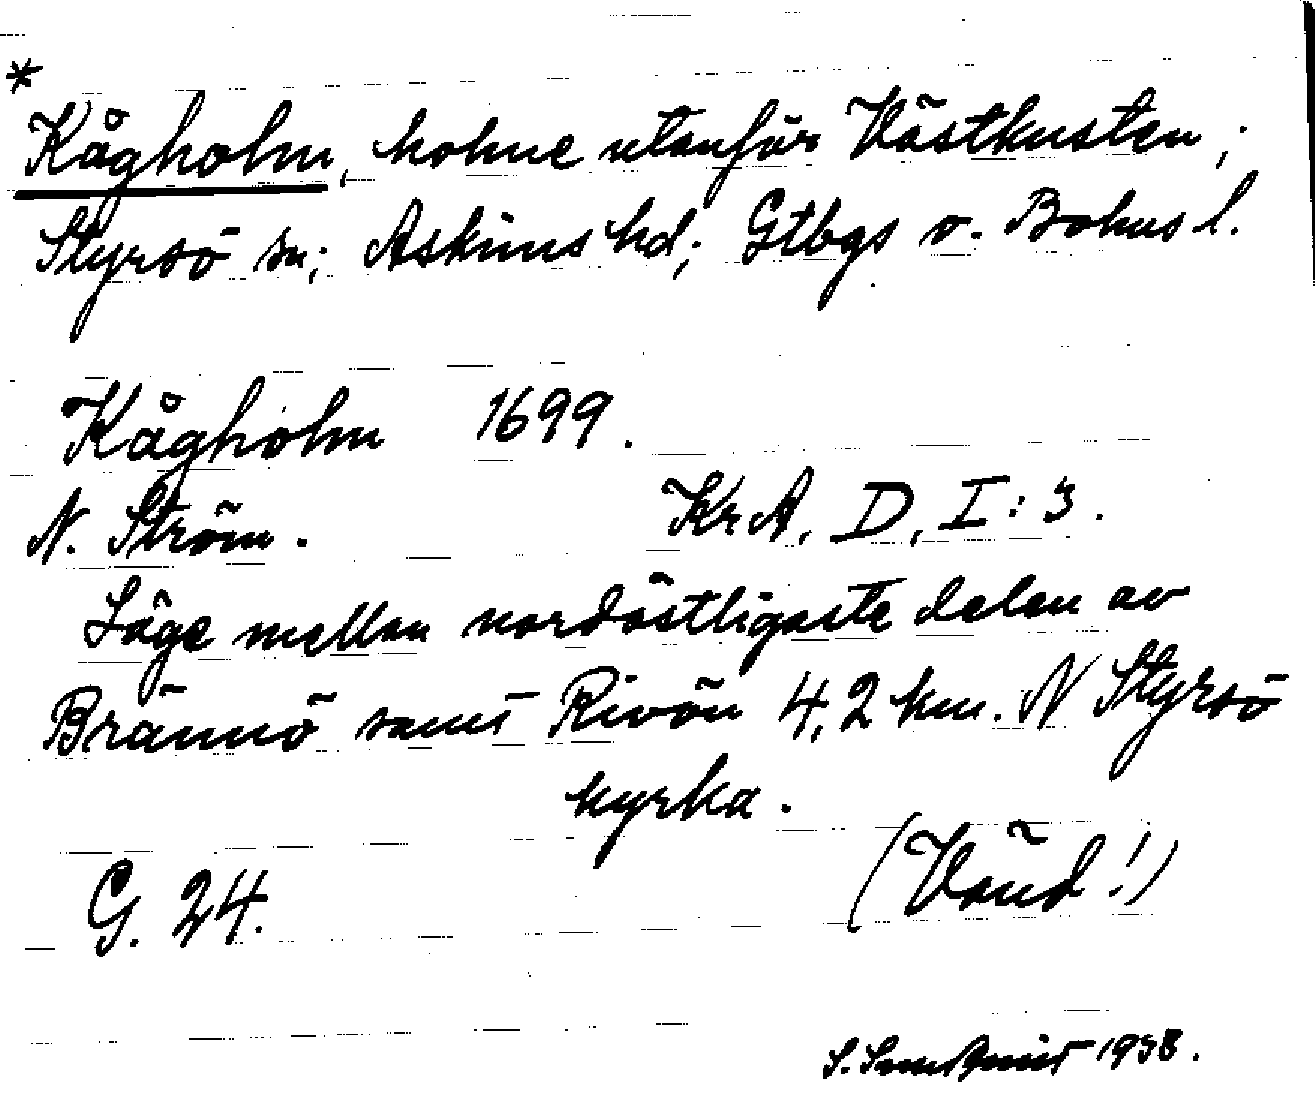 *
Kågholm, holme utanför Västkusten;
Styrsö sn; Askims hd; Gtbgs o. Bohus l.
Kågholm 1699.
N. Ström. KrA, D, I:3.
Läge mellan nordöstligaste delen av
Brännö samt Rivön 4,2 km. N Styrsö
kyrka.
G. 24. (Vänd!)
S. 1938.